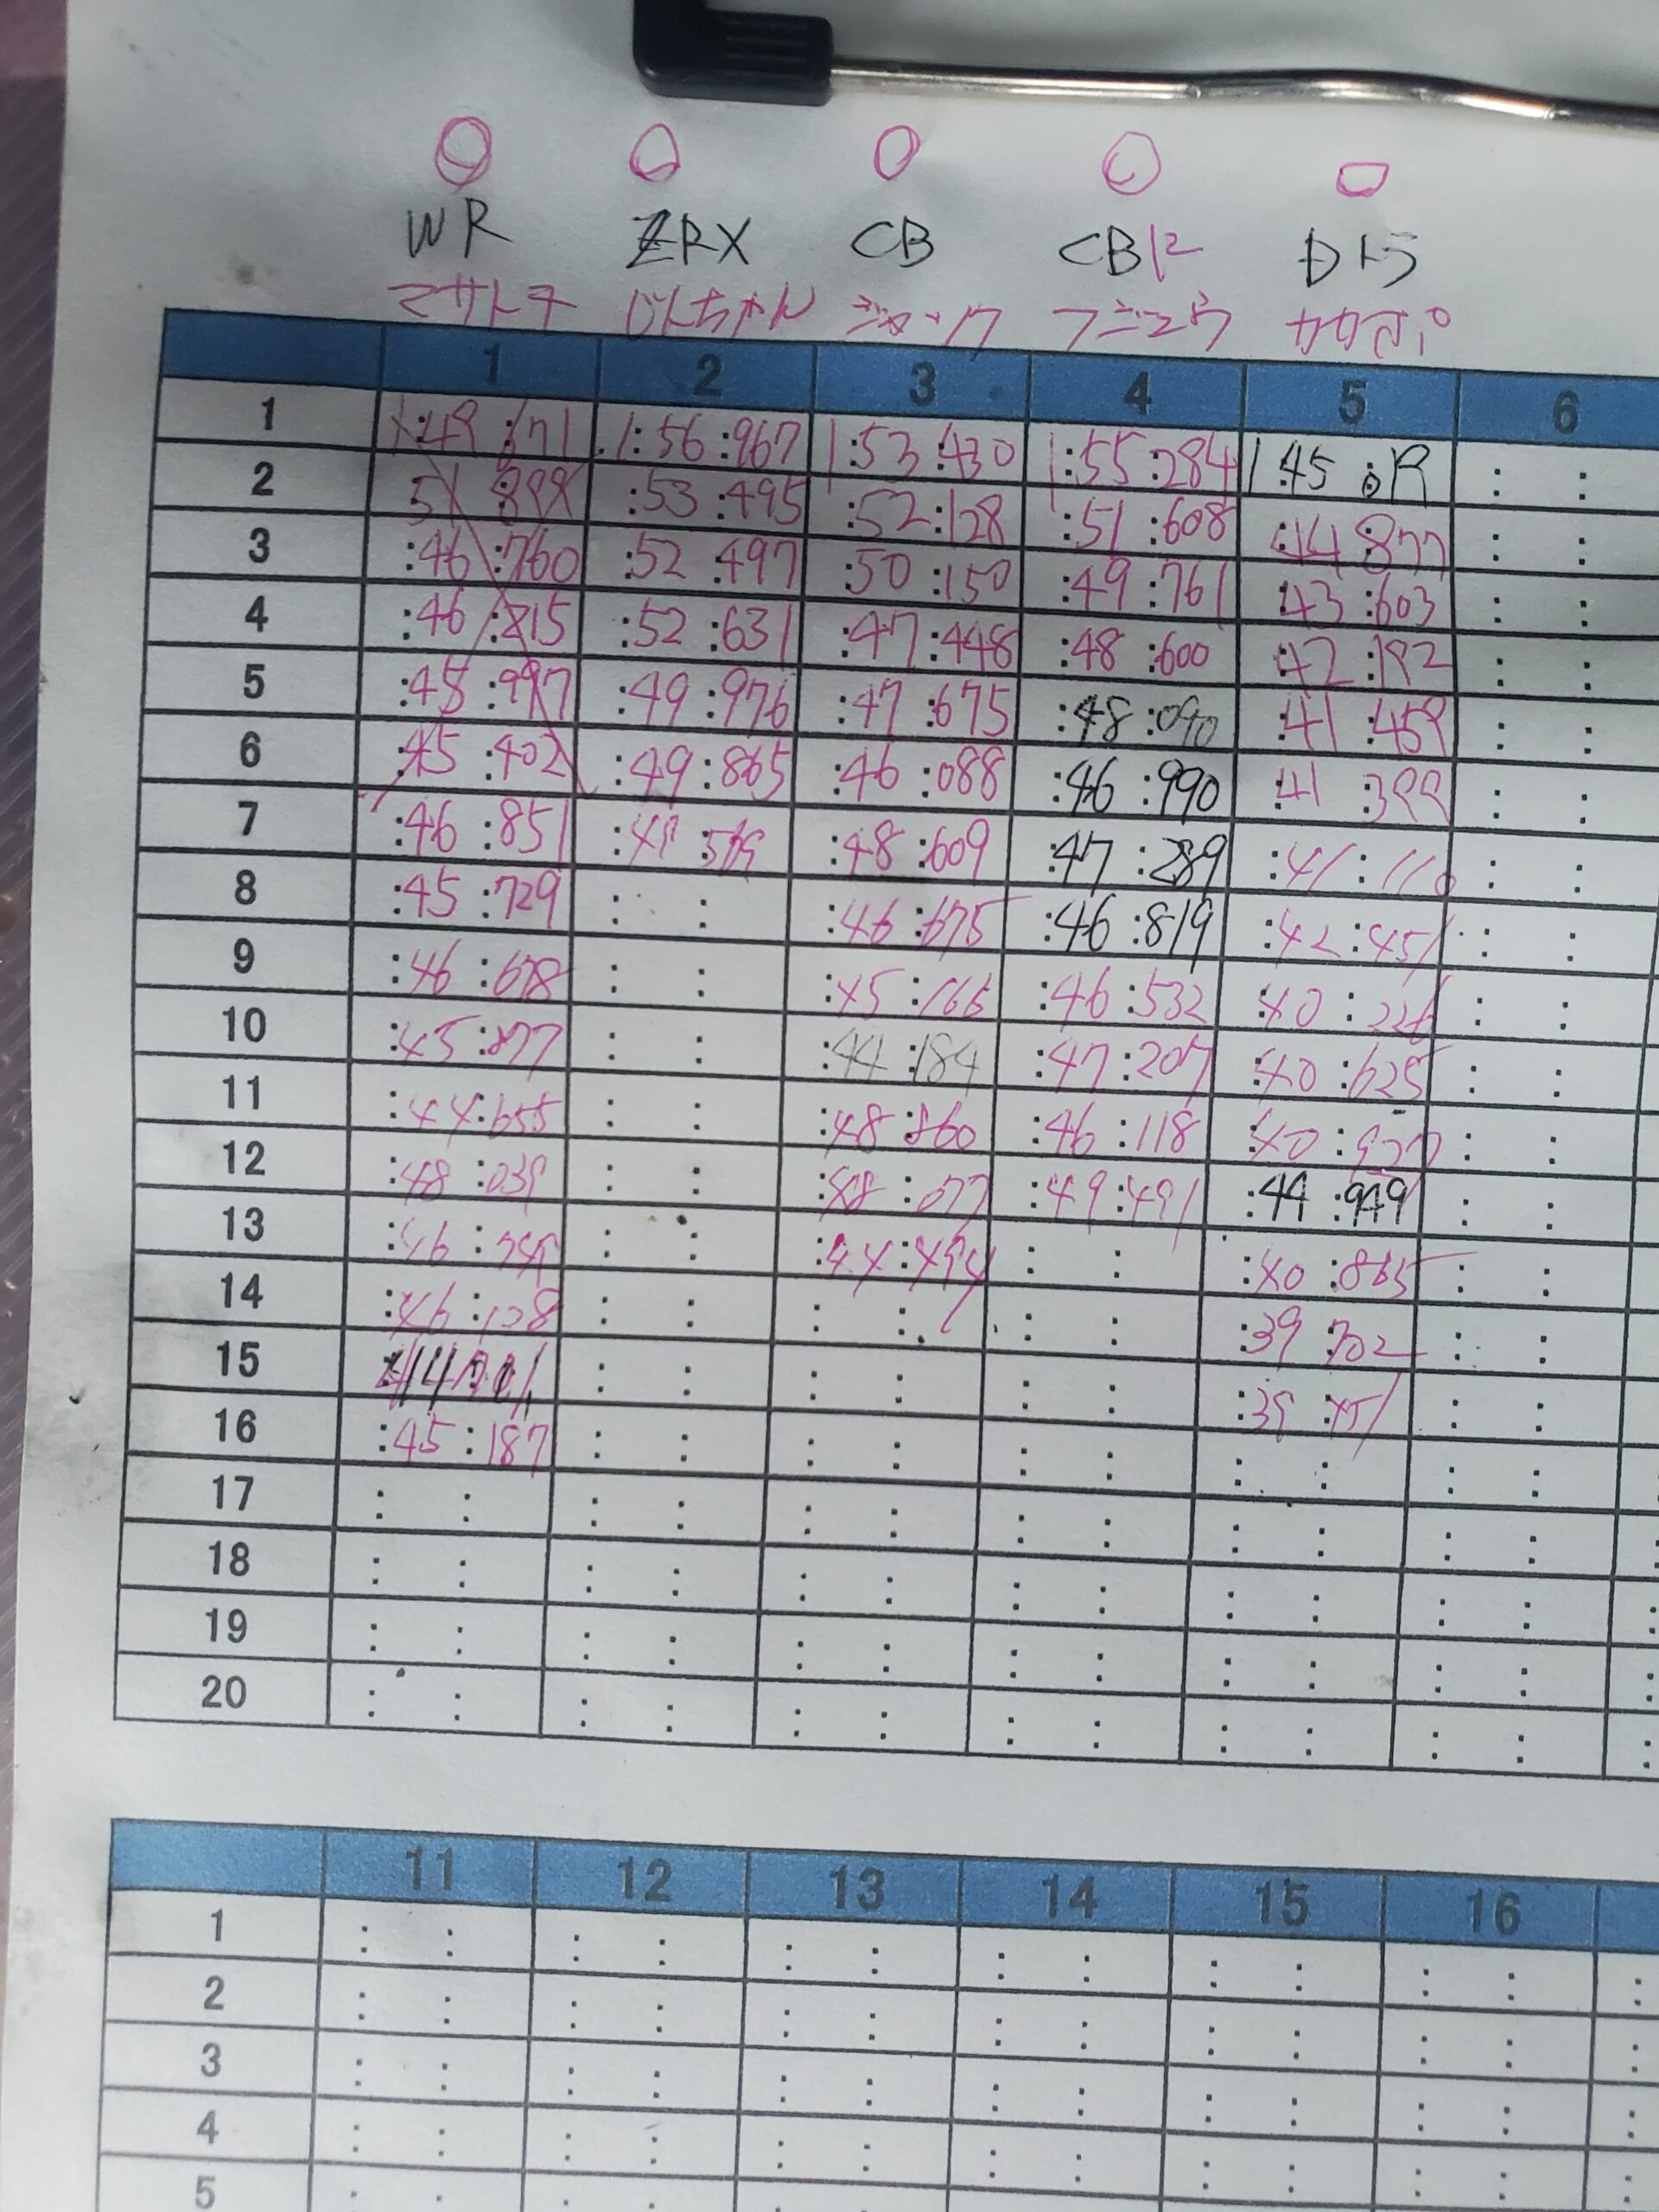 WR ZRX CB CB12 Dトラ
マサトチ じんちゃん
1 2 3 4 5 6
1 1:56:967 1:53:430 1:55:284 1:45 : :
2 :53:495 :52:128 :51:608 :44:877 : :
3 :46:760 :52:497 :50:150 :49:761 :43:603 : :
4 :46:215 :52:631 :47:448 :48:600 :42:192 : :
5 :45:997 :49:976 :47:675 :48:090 :41:459 : :
6 :45:402 :49:865 :46:088 :46:990 :41:399 : :
7 :46:851 :48:609 :47:289 :41:110 : :
8 :45:729 : : :46:675 :46:819 :42:451 : :
9 :46:678 : : :45:165 :46:532 :40:226 : :
10 :45:877 : : :44:184 :47:207 :40:625 : :
11 :44:655 : : :48:860 :46:118 : :
12 :48:039 : : :48:077 :49:491 :44:949 : :
13 : : :44:494 : : :40:865 : :
14 :46:128 : : : : : : :39:702 : :
15 : : : : : : :39:451 : :
16 :45:187 : : : : : : : : : :
17 : : : : : : : : : : : :
18 : : : : : : : : : : : :
19 : : : : : : : : : : : :
20 : : : : : : : : : : : :
11 12 13 14 15 16
1 : : : : : : : : : : : :
2 : : : : : : : : : : : :
3 : : : : : : : : : : : :
4 : : : : : : : : : : : :
5 : : : : : : : : : : : :